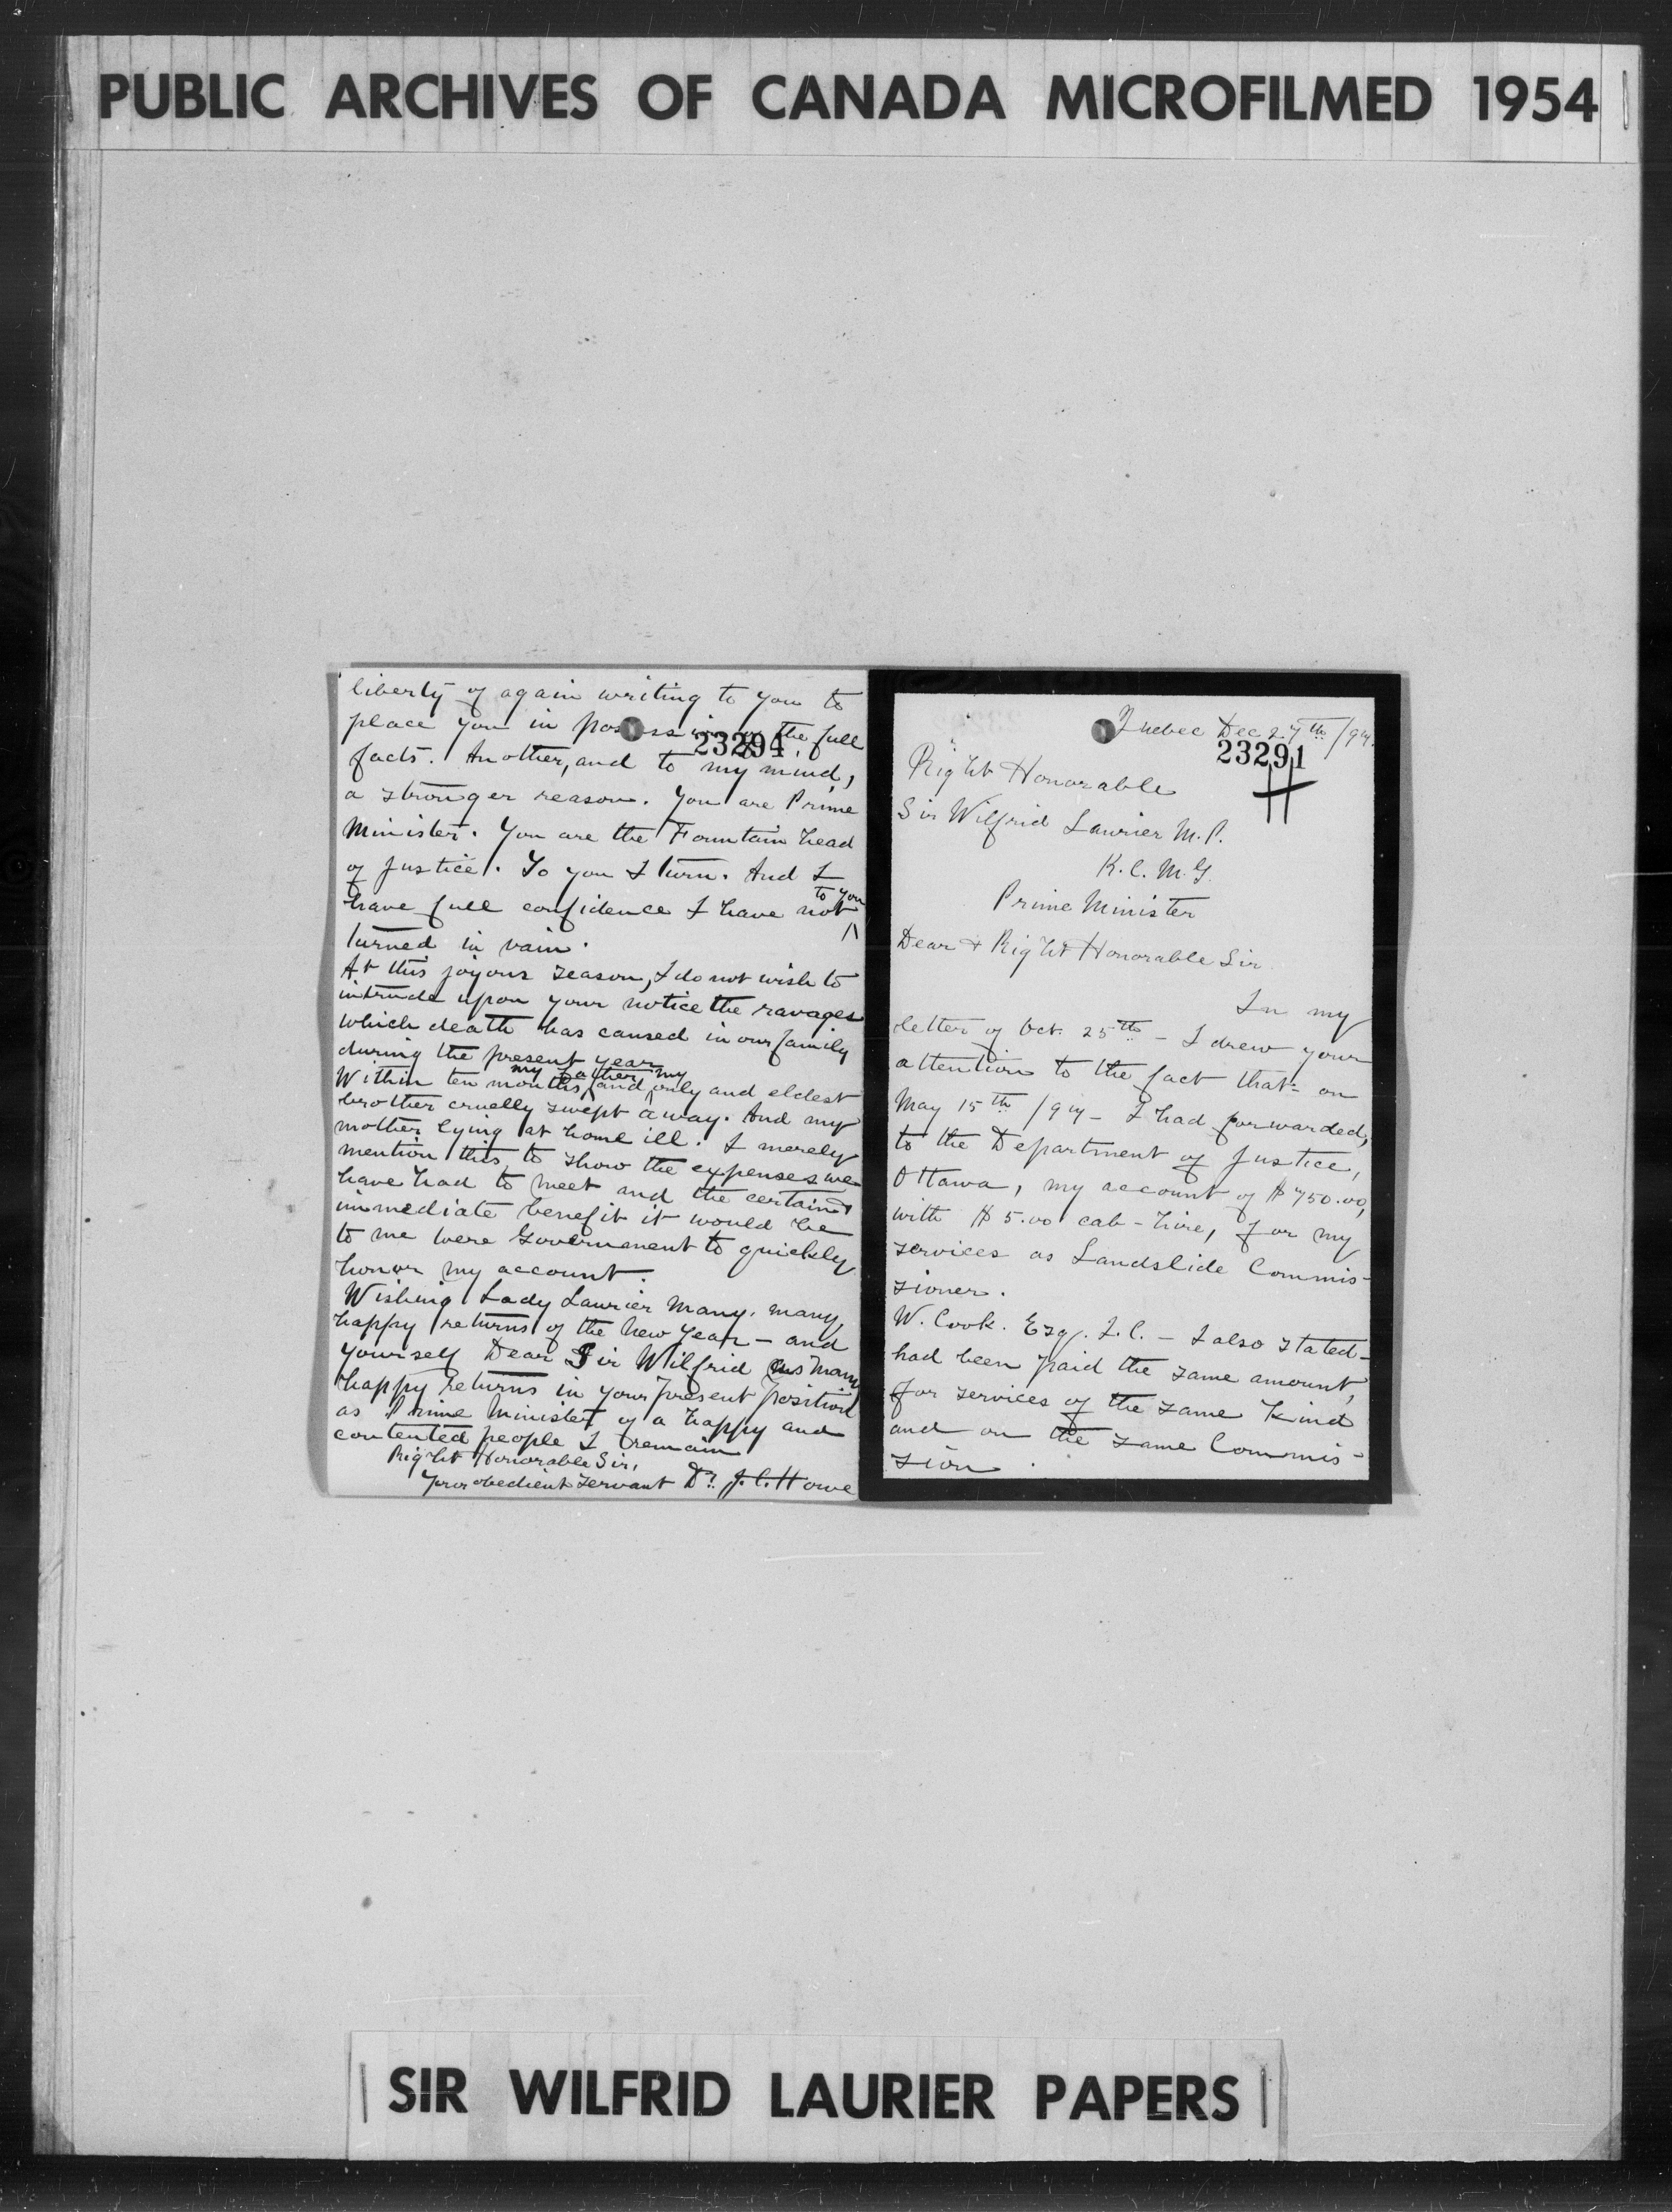 PUBLIC ARCHIVES OF CANADA MICROFILMED 1954
liberty of again writing to you to
place you in possession of the full
23294
facts. Another, and to my mind,
a stronger reason. You are Prime
Minister. You are the Fountain head
of Justice. To you I turn. And I
have full confidence I have not to you
turned in vain.
At this joyous season, I do not wish to
intrude upon your notice the ravages
which death has caused in our family
during the present year.
Within ten months, my father and my only and eldest
brother cruelly swept away. And my
mother lying at home ill. I merely
mention this to show the expenses we
have had to meet and the certain &
immediate benefit it would be
to me were Government to quickly
honor my account.
Wishing Lady Laurier many, many
happy returns of the New Year - and
yourself Dear Sir Wilfrid as many
happy returns in your present position
as Prime Minister of a happy and
contented people I remain
Right Honorable Sir,
Your obedient servant Dr. J. C. Howe
Quebec Dec 27th /97.
23291
Right Honorable
Sir Wilfrid Laurier M.P.
K.C.M.G.
Prime Minister
Dear & Right Honorable Sir
In my
letter of Oct. 25th - I drew your
attention to the fact that - on
May 15th /97 - I had forwarded,
to the Department of Justice,
Ottawa, my account of $750.00,
with $5.00 cab-hire, for my
services as Landslide Commis-
sioner.
W. Cook. Esq. Q.C. - I also stated -
had been paid the same amount,
for services of the same kind
and on the same Commis-
sion.
SIR WILFRID LAURIER PAPERS